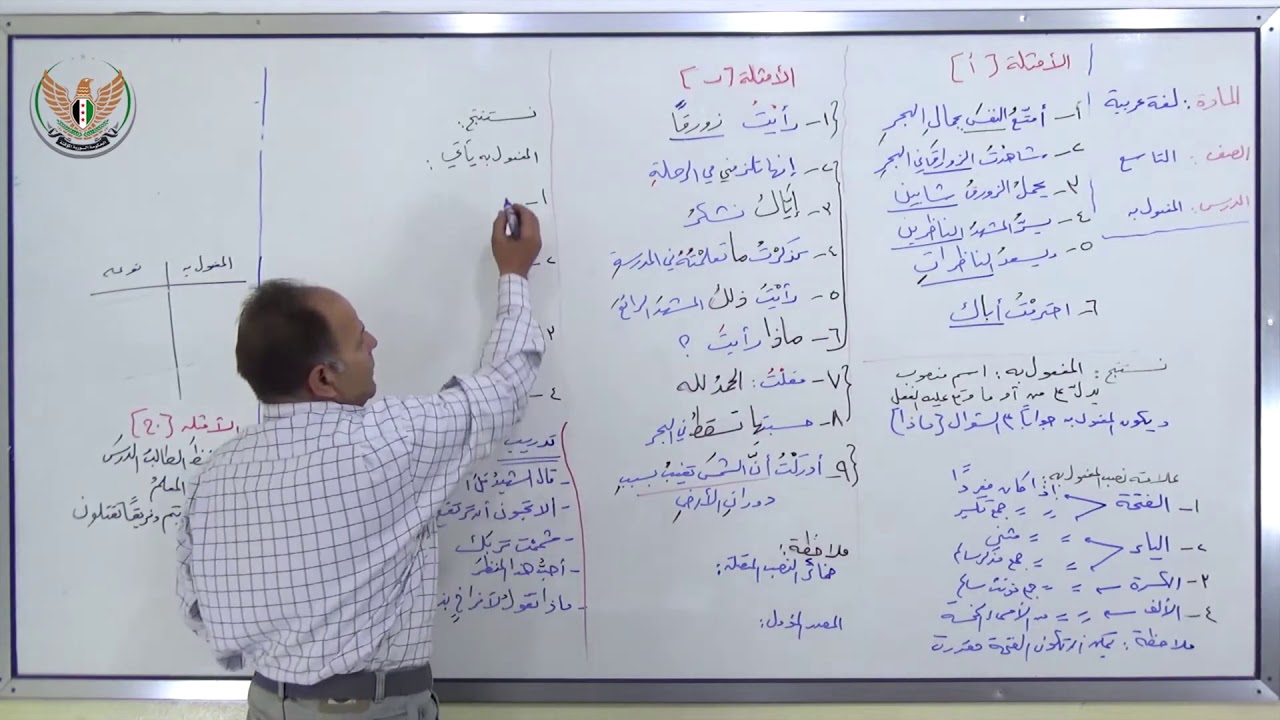 المادة: لغة عربية
الصف: التاسع
الدرس: المفعول به
الأمثلة [أ]
١- أمتّعُ النفسَ بجمالِ البحرِ
٢- شاهدْتُ الزوارقَ في البحرِ
٣- يحملُ الزورقُ شابين
٤- يسرُّ المشهدُ الناظرين
٥- ويسعدُ الناظراتِ
٦- احترمْتُ أباك
نستنتج: المفعول به: اسم منصوب
يدلّ على من أو ما وقع عليه الفعل
ويكون المفعول به جواباً للسؤال [ماذا]
علامة نصب المفعول به:
١- الفتحة إذا كان مفرداً
= = جمع تكسير
٢- الياء = = مثنى
= = جمع مذكر سالم
٣- الكسرة = = جمع مؤنث سالم
٤- الألف = = من الأسماء الخمسة
ملاحظة: يمكن أن تكون الفتحة مقدرة
الأمثلة [ب]
١- رأيْتُ زورقاً
٢- إنها تلزمني في الرحلةِ
٣- إيّاكَ نشكرُ
٤- تذكرْتُ ما تعلمْتهُ في المدرسةِ
٥- رأيْتُ ذلك المشهدَ الرائعَ
٦- ماذا رأيتَ؟
٧- فقلْتُ: الحمدُ لله
٨- حسبتها تسقطُ في البحرِ
٩- أدركْتُ أنَّ الشمسَ تغيبُ بسببِ
دورانِ الأرضِ
ملاحظة:
ضمائر النصب المتصلة:
المصدر المؤول:
نستنتج:
المفعول به يأتي:
١-
٢-
٣
٤-
تدريب
- قال الشهيدُ قبل
- ألا تحبون أن
- شممْت تربك
- أحبُّ هذا المنظرَ
- ماذا تقولُ
المفعول به
نوعه
الأمثلة [ج]
الطالبُ الدرسَ
المعلمُ
وفريقاً تقتلون